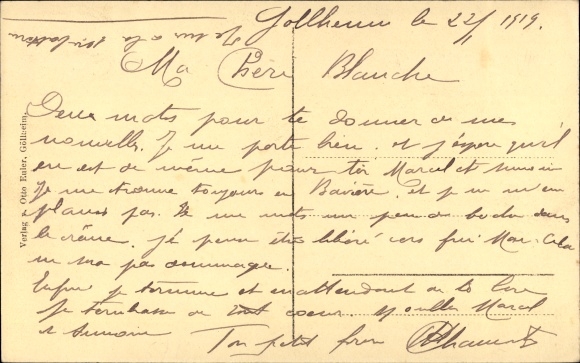 Gollheim le 22/1 1919.
Je suis à la
Ma Chère Blanche
Deux mots pour te donner de mes
nouvelles. Je me porte bien et j'espère qu'il
en est de même pour toi Marcel et
Je me trouve toujours en Bavière et je m'en
plains pas. Je me mets un peu de boche dans
le crâne. Je pense être libéré vers fin Mai. Cela
ne pas dommage.
Enfin je termine et en attendant de te lire
Je t'embrasse de tout coeur. Marcel
et
Ton petit frère
Verlag v. Otto Euler, Göllheim.